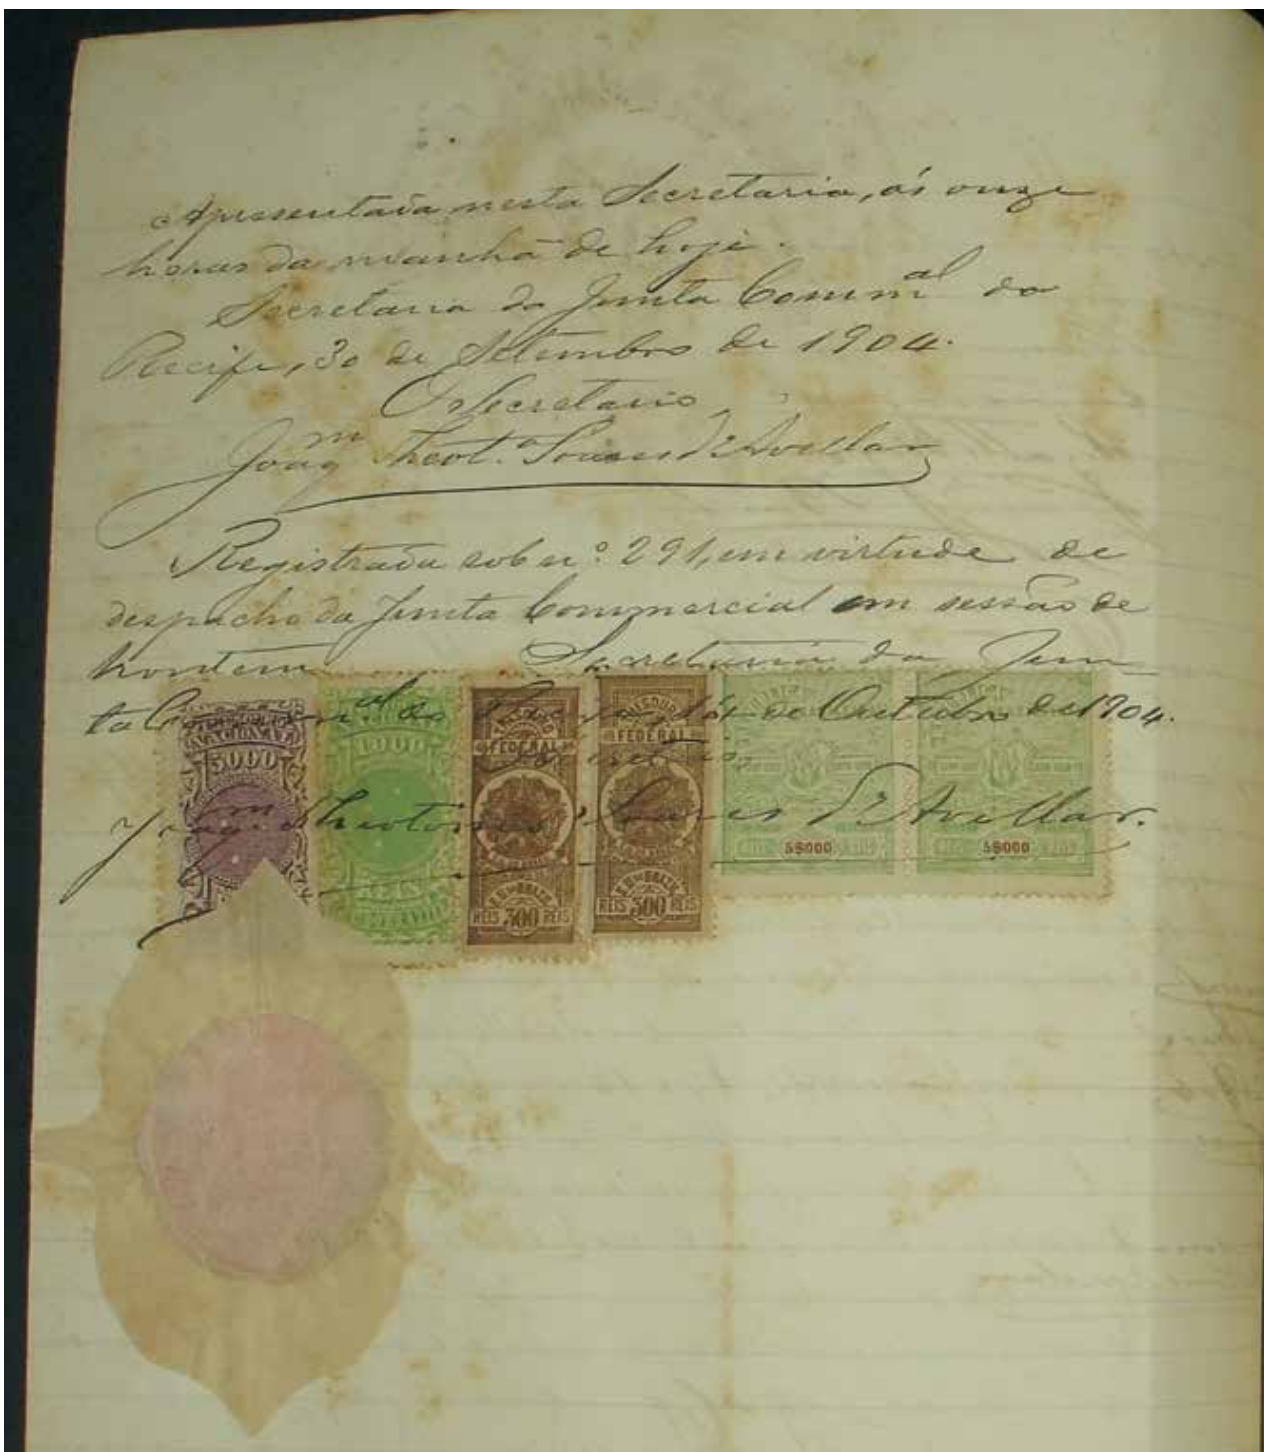 Apresentada nesta Secretaria, ás onze
horas da manhã de hoje.
Secretaria da Junta Comm^al do
Recife, 30 de Setembro de 1904.
O Secretario,
Joaq^m Theot.^o Soares d'Avellar
Registrada sob n.º 291, em virtude de
despacho da Junta Commercial em sessão de
hontem. Secretaria da Jun
ta Comm^al do Recife, de Outubro de 1904.
O Secretario,
Joaq^m Theotonio Soares d'Avellar.
THESOURO
NACIONAL
5000
1000
REIS
THESOURO
FEDERAL
E.U. DO BRAZIL
REIS 300 REIS
THESOURO
FEDERAL
E.U. DO BRAZIL
REIS 300 REIS
5$000
5$000